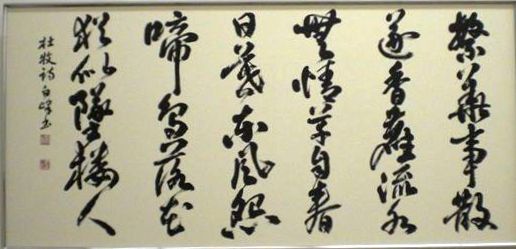 繁華事散
逐香塵流水
無情草自春
日暮東風怨
啼鳥落花
猶似墜樓人
杜牧詩白峰書